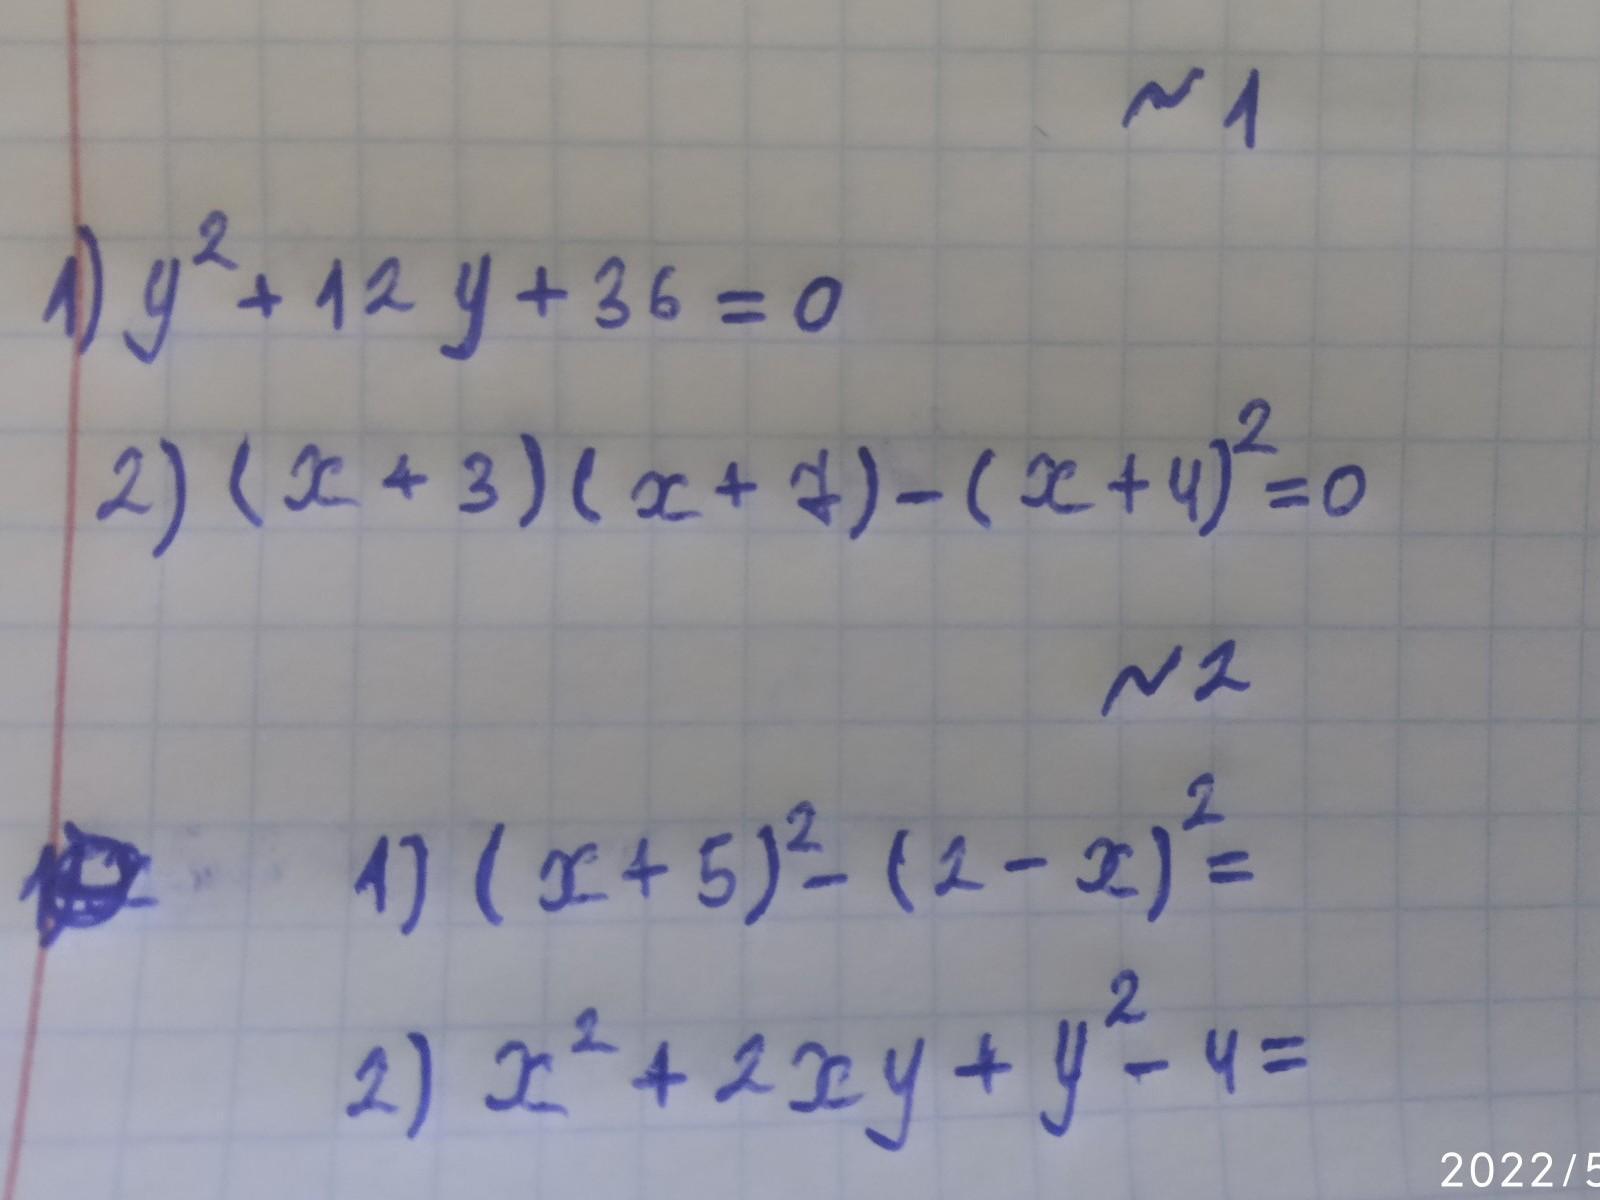 ~1
1) y² + 12y + 36 = 0
2) (x + 3)(x + 7) - (x + 4)² = 0
~2
1) (x + 5)² - (2 - x)² =
2) x² + 2xy + y² - 4 =
2022/5